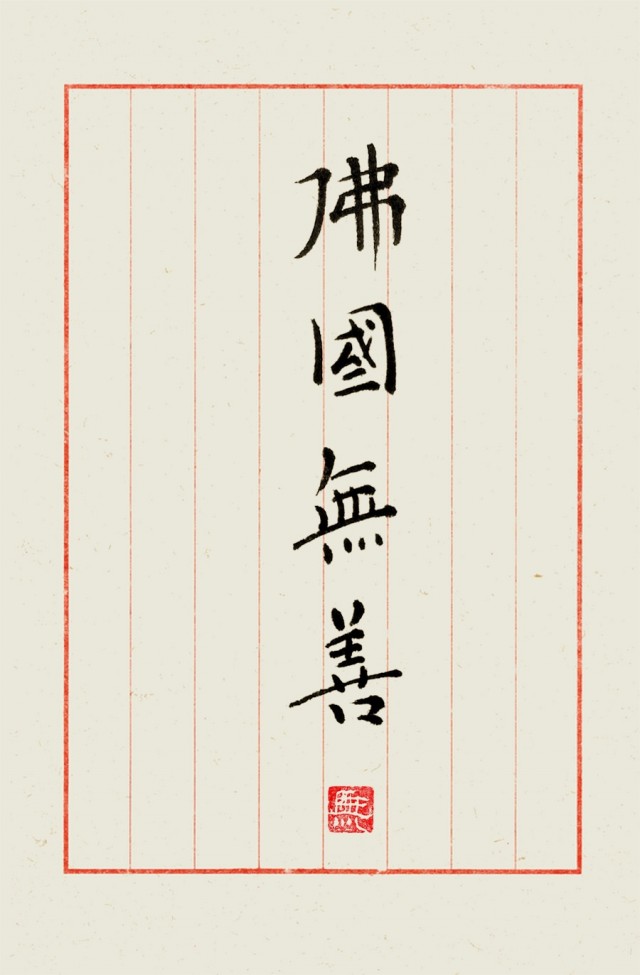 佛國無善